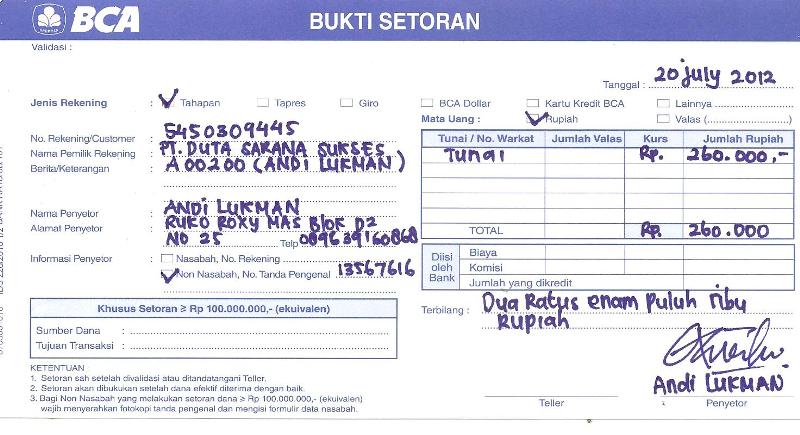 BCA
BUKTI SETORAN
Validasi :
Tanggal : 20 july 2012
Jenis Rekening : Tahapan Tapres Giro BCA Dollar Kartu Kredit BCA Lainnya
Mata Uang : Rupiah Valas
No. Rekening/Customer : 5450309445
Nama Pemilik Rekening : PT. DUTA SARANA SUKSES
Berita/Keterangan : A00200 (ANDI LUKMAN)
Tunai / No. Warkat Jumlah Valas Kurs Jumlah Rupiah
Tunai Rp. 260.000,-
TOTAL Rp. 260.000
Nama Penyetor : ANDI LUKMAN
Alamat Penyetor : RUKO ROXY MAS Blok D2
NO 25 Telp 089639160868
Informasi Penyetor : Nasabah, No. Rekening :
Non Nasabah, No. Tanda Pengenal : 13567616
Diisi oleh Bank
Biaya
Komisi
Jumlah yang dikredit
Khusus Setoran ≥ Rp 100.000.000,- (ekuivalen)
Sumber Dana :
Tujuan Transaksi :
Terbilang : Dua Ratus enam Puluh ribu
Rupiah
KETENTUAN :
1. Setoran sah setelah divalidasi atau ditandatangani Teller.
2. Setoran akan dibukukan setelah dana efektif diterima dengan baik.
3. Bagi Non Nasabah yang melakukan setoran dana ≥ Rp 100.000.000,- (ekuivalen)
wajib menyerahkan fotokopi tanda pengenal dan mengisi formulir data nasabah.
Andi LUKMAN
Teller Penyetor